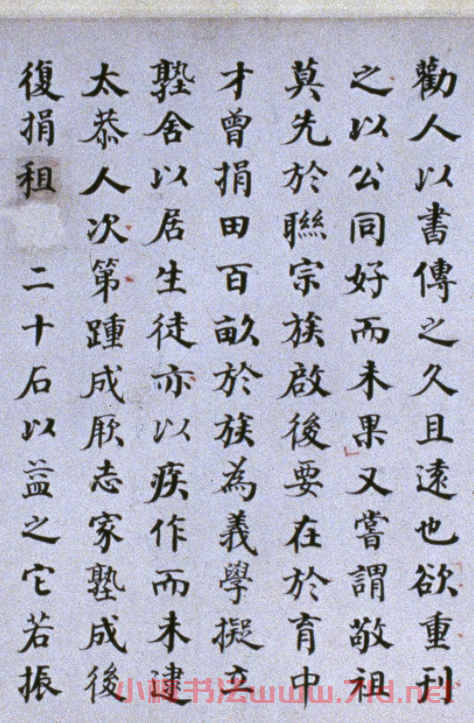 勸人以書傳之久且遠也欲重刊
之以公同好而未果又嘗謂敬祖
莫先於聯宗族啟後要在於育中
才曾捐田百畝於族為義學擬立
塾舍以居生徒亦以疾作而未逮
太恭人次第踵成厥志家塾成後
復捐租 二十石以益之它若振
小楷书法www.71d.net